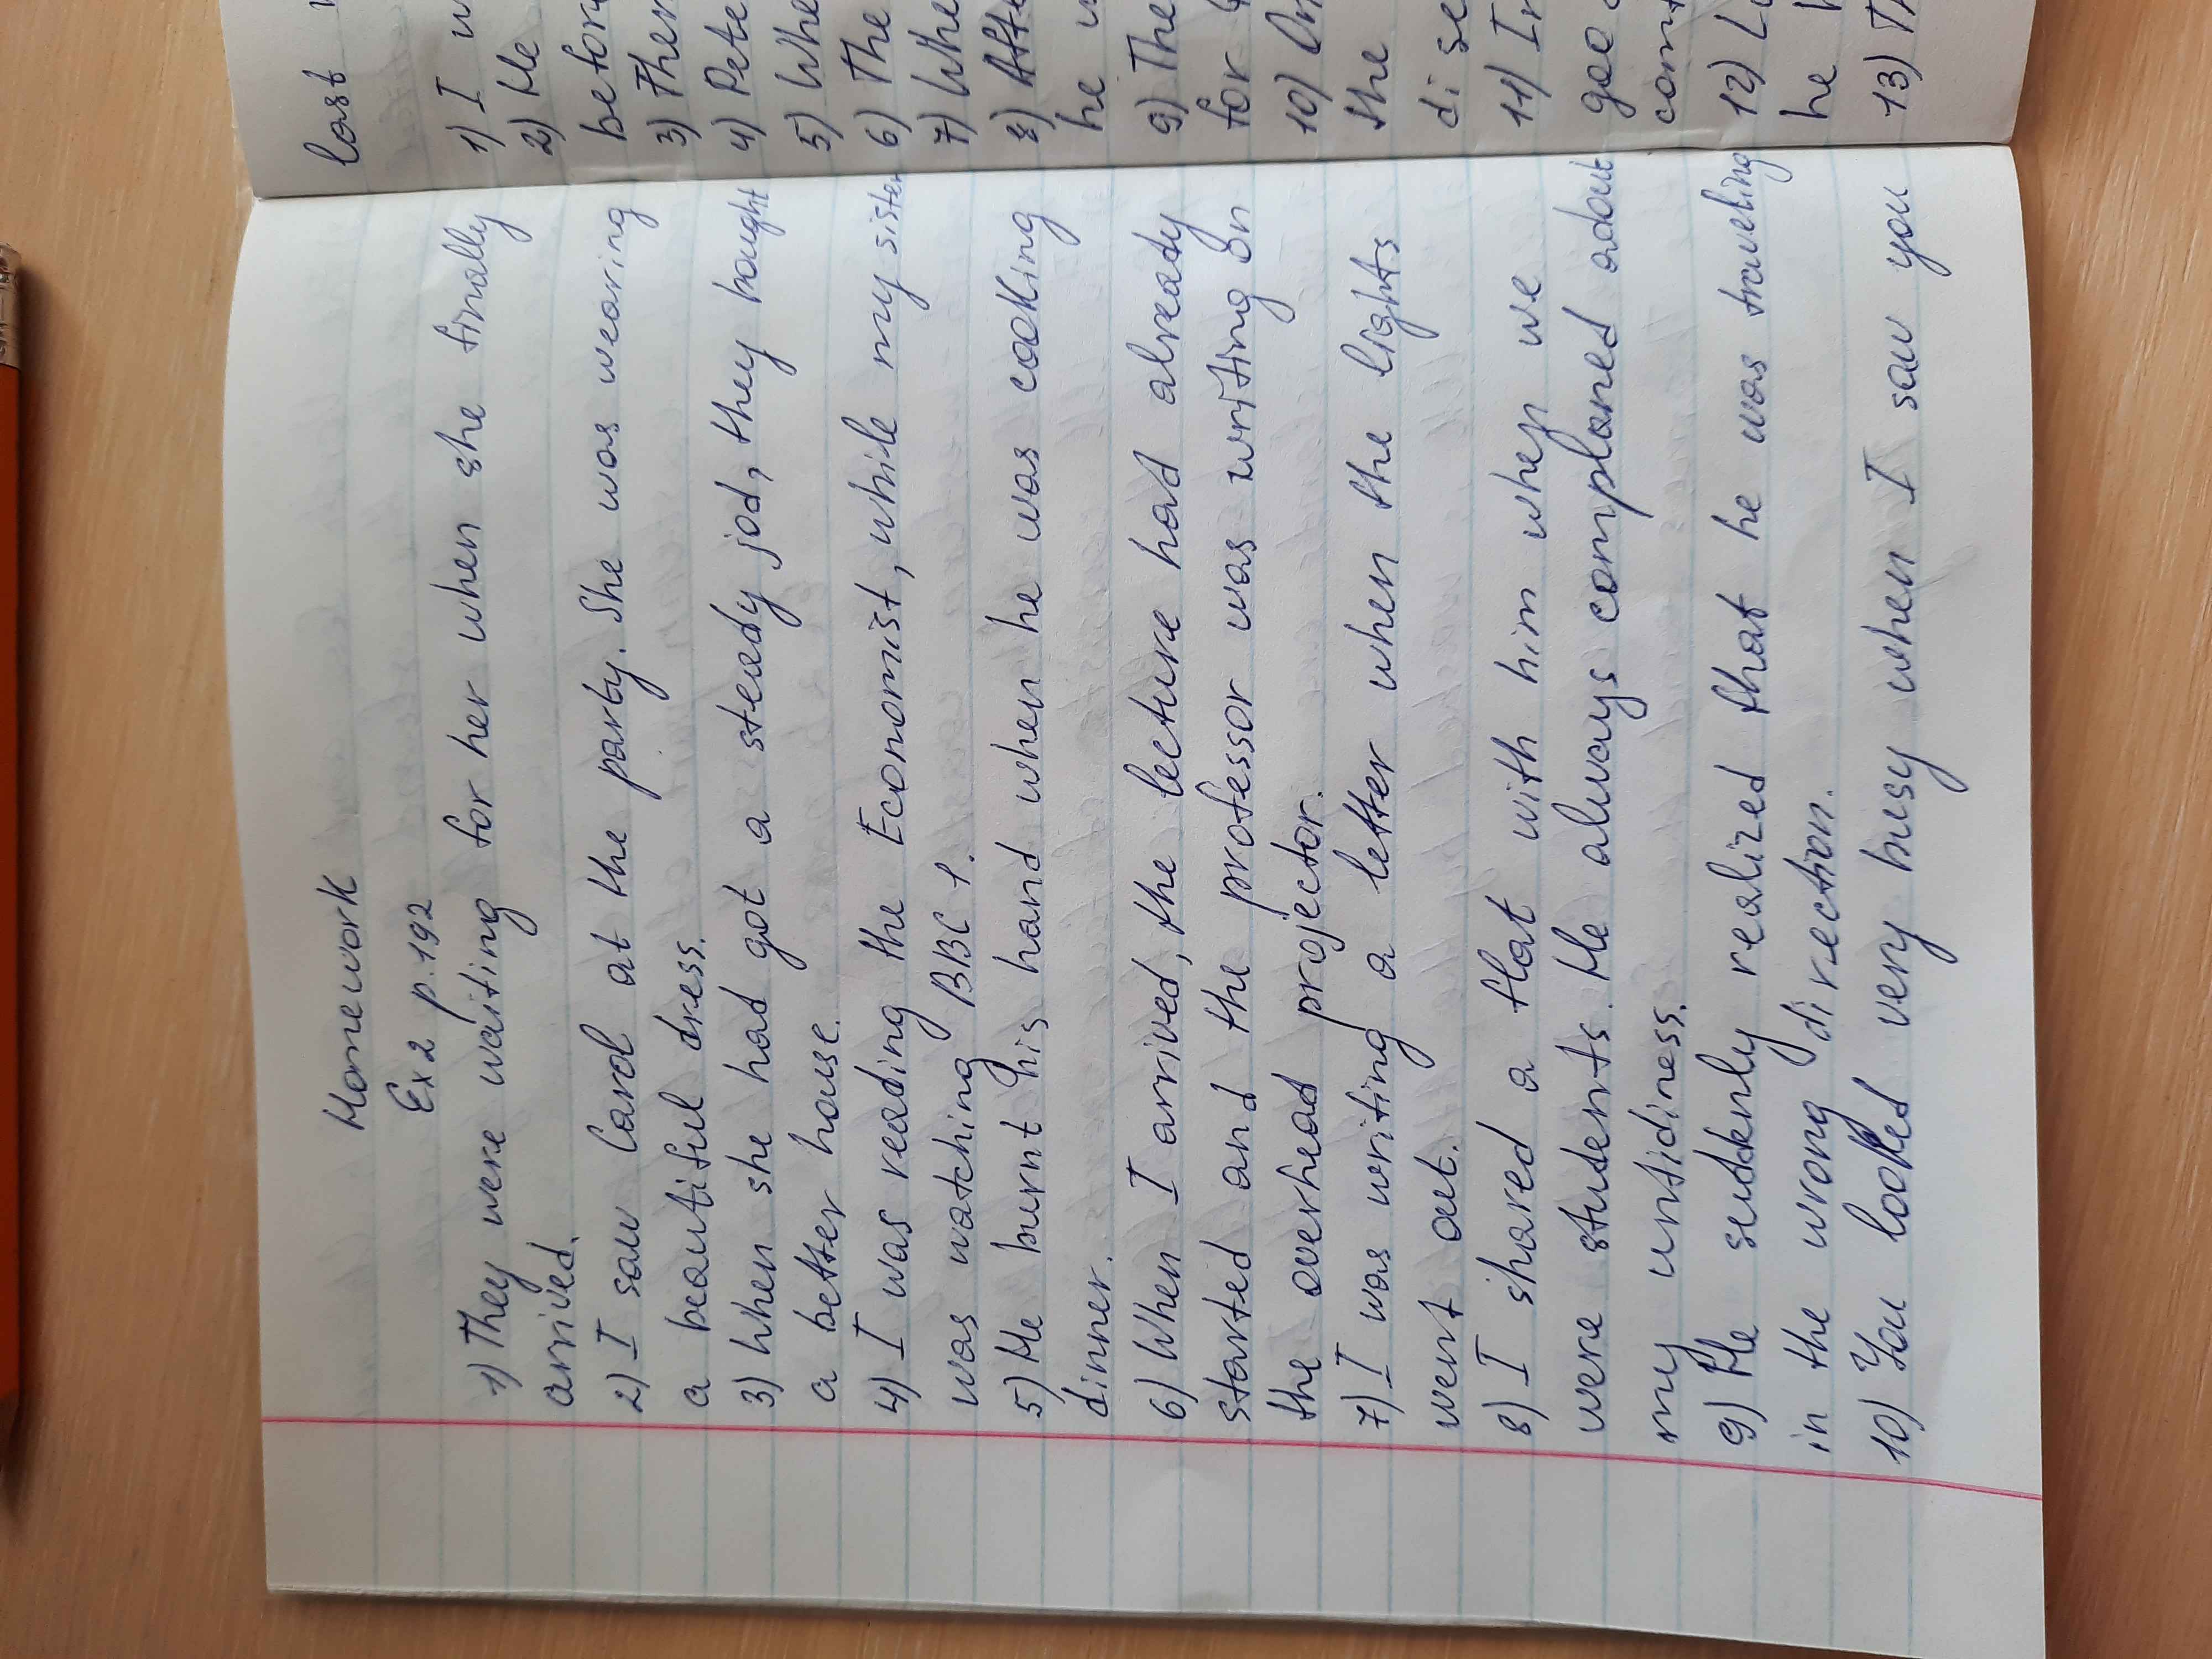 Homework
Ex 2 p. 192
1) They were waiting for her when she finally
arrived.
2) I saw Carol at the party. She was wearing
a beautiful dress.
3) When she had got a steedy jod, they bought
a better house.
4) I was reading the Economist, while my sister
was watching BBC 1.
5) He burnt his hand when he was cooking
dinner.
6) When I arrived, the lecture had already
started and the professor was writing on
the overhead projector.
7) I was writing a letter when the lights
went out.
8) I shared a flat with him when we
were students. He always complaned about
my untidiness.
9) He suddenly realized that he was traveling
in the wrong direction.
10) You looked very busy when I saw you
last
1) I w
2) He
before
3) Ther
4) Pete
5) Whe
6) The
7) Whe
8) Afte
he w
9) The
for
10)
the
di se
11) In
com
12)
he
13) Th